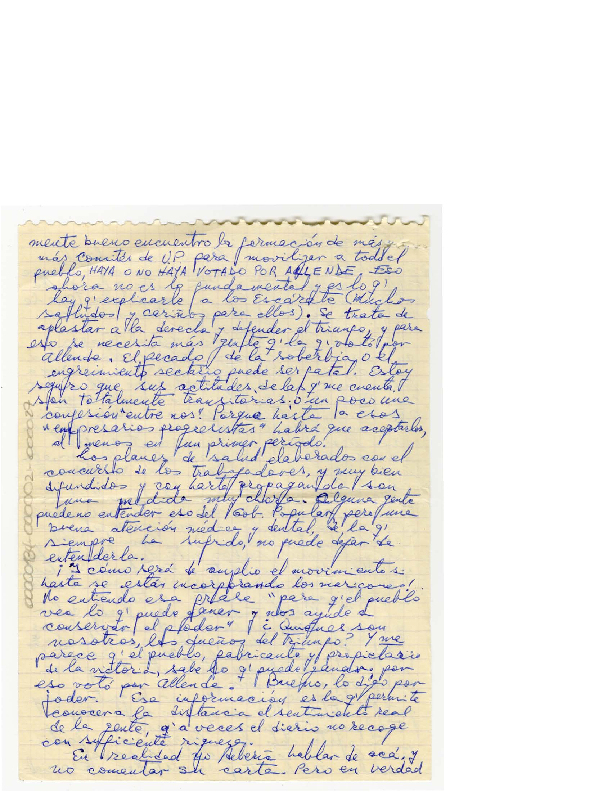 mente bueno encuentro la formación de más y
más Comités de U.P. para movilizar a todo el
pueblo, HAYA O NO HAYA VOTADO POR ALLENDE. Eso
ahora no es lo fundamental y es lo q'
hay q' explicarle a los Escarate (Muchos
saludos y cariños para ellos). Se trata de
aplastar a la derecha y defender el triunfo, y para
eso se necesita más gente q' la q' votó por
Allende. El pecado de la soberbia o el
engreimiento sectario puede ser fatal. Estoy
seguro que, sus actitudes, de las q' me cuenta,
son totalmente transitorias. O un poco una
confesión "entre nos". Porque hasta a esos
"empresarios progresistas" habrá que aceptarlos,
al menos en un primer período.
Los planes de salud elaborados con el
concurso de los trabajadores, y muy bien
difundidos y con harta propaganda son
una medida muy choriza. Alguna gente
puede no entender eso del Gob. Popular, pero una
buena atención médica y dental, de la q'
siempre ha sufrido, no puede dejar de
entenderla.
¡Y cómo será de amplio el movimiento si
hasta se están incorporando los maricones!
No entiendo esa frase "para q' el pueblo
vea lo q' puede ganar y nos ayude a
conservar el poder" ¿Quiénes son
nosotros, los dueños del triunfo? Y me
parece q' el pueblo, fabricante y propietario
de la victoria, sabe lo q' puede ganar. por
eso votó por Allende. Bueno, lo digo por
joder. Esa información es la q' permite
conocer a la distancia el sentimiento real
de la gente, q' a veces el diario no recoge
con suficiente riqueza.
En realidad yo debería hablar de acá, y
no comentar su carta. Pero en verdad